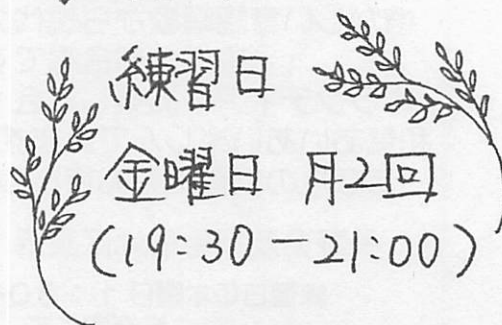 練習日
金曜日 月2回
(19:30-21:00)